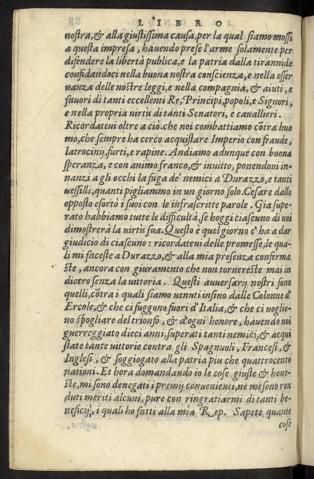 LIBRO
nostra, & alla giustissima causa, per la qual siamo mossi
a questa impresa, havendo prese l'arme solamente per
difendere la libertà publica, e la patria dalla tirannide
confidandoci nella buona nostra conscienza, e nella osser
uanza delle nostre leggi, e nella compagnia, & aiuti, e
fauori di tanti eccellenti Re, Principi, popoli, e Signori,
e nella propria uirtù di tanti Senatori, e cauallieri.
Ricordateui oltre a ciò che noi combattiamo cõtra huo
mo, che sempre ha cerco acquistare Imperio con fraude,
latrocinij, furti, e rapine. Andiamo adunque con buona
speranza, e con animo franco, & inuitto, ponendoui in-
nanzi a gli occhi la fuga de' nemici a Durazzo, e tanti
uessilli, quanti pigliammo in un giorno solo. Cesare dallo
opposto esortò i suoi con le infrascritte parole. Gia supe-
rato habbiamo tutte le difficultà, se hoggi ciascuno di uoi
dimostrerà la uirtù sua. Questo è quel giorno c'ha a dar
giudicio di ciascuno: ricordateui delle promesse, le qua-
li mi faceste a Durazzo, & alla mia presenza conferma
ste, ancora con giuramento che non tornereste mai in
dietro senza la uittoria. Questi auuersarij nostri sono
quelli, cõtra i quali siamo uenuti insino dalle Colonne d'
Ercole, & che ci fuggono fuori d'Italia, & che ci uoglio-
no spogliare del trionfo, & d'ogni honore, hauendo noi
guerreggiato dieci anni, superati tanti nemici, & acqui
state tante uittorie contra gli Spagnuoli, Francesi, &
Inglesi, & soggiogato alla patria piu che quattrocento
nationi. Et hora domandando io le cose giuste & hone-
ste, mi sono denegati i premij conuenienti, ne mi sono ren
duti meriti alcuni, pure con ringratiarmi di tanti be-
neficij, i quali ho fatti alla mia Rep. Sapete quante
cose